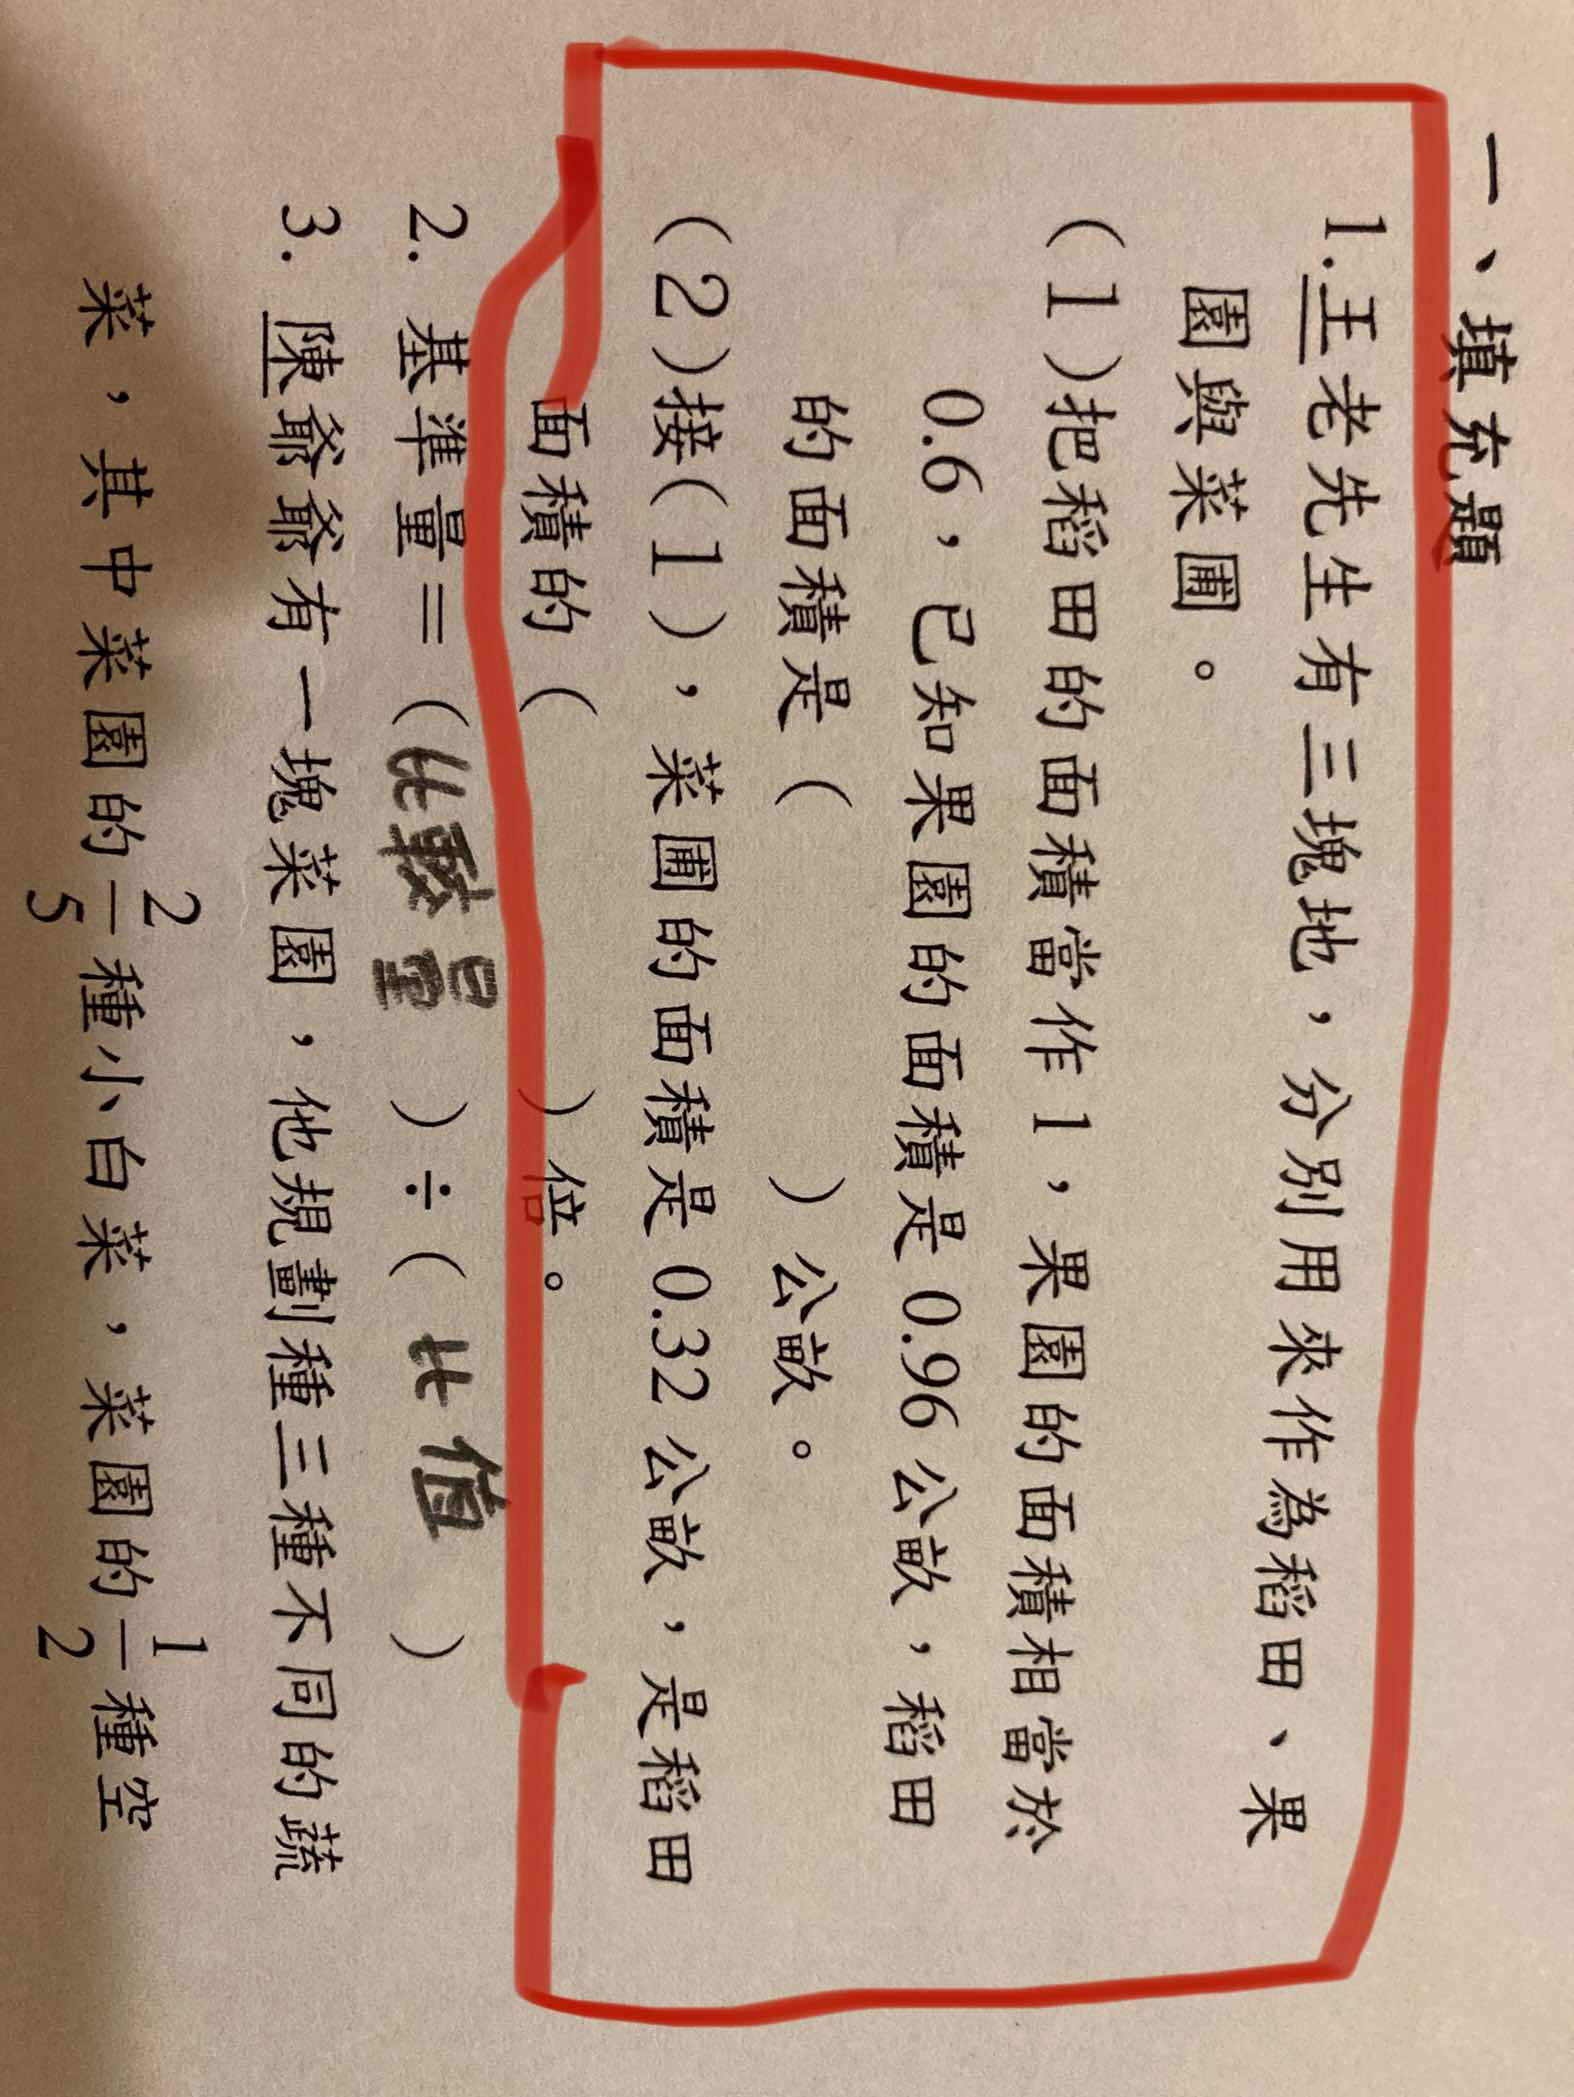 一、填充題
1.王老先生有三塊地，分別用來作為稻田、果
園與菜圃。
(1)把稻田的面積當作1，果園的面積相當於
0.6，已知果園的面積是0.96公畝，稻田
的面積是(　　　)公畝。
(2)接(1)，菜圃的面積是0.32公畝，是稻田
面積的(　　　)倍。
2. 基準量＝(比較量)÷(比值)
3. 陳爺爺有一塊菜園，他規劃種三種不同的蔬
菜，其中菜園的2/5種小白菜，菜園的1/2種空